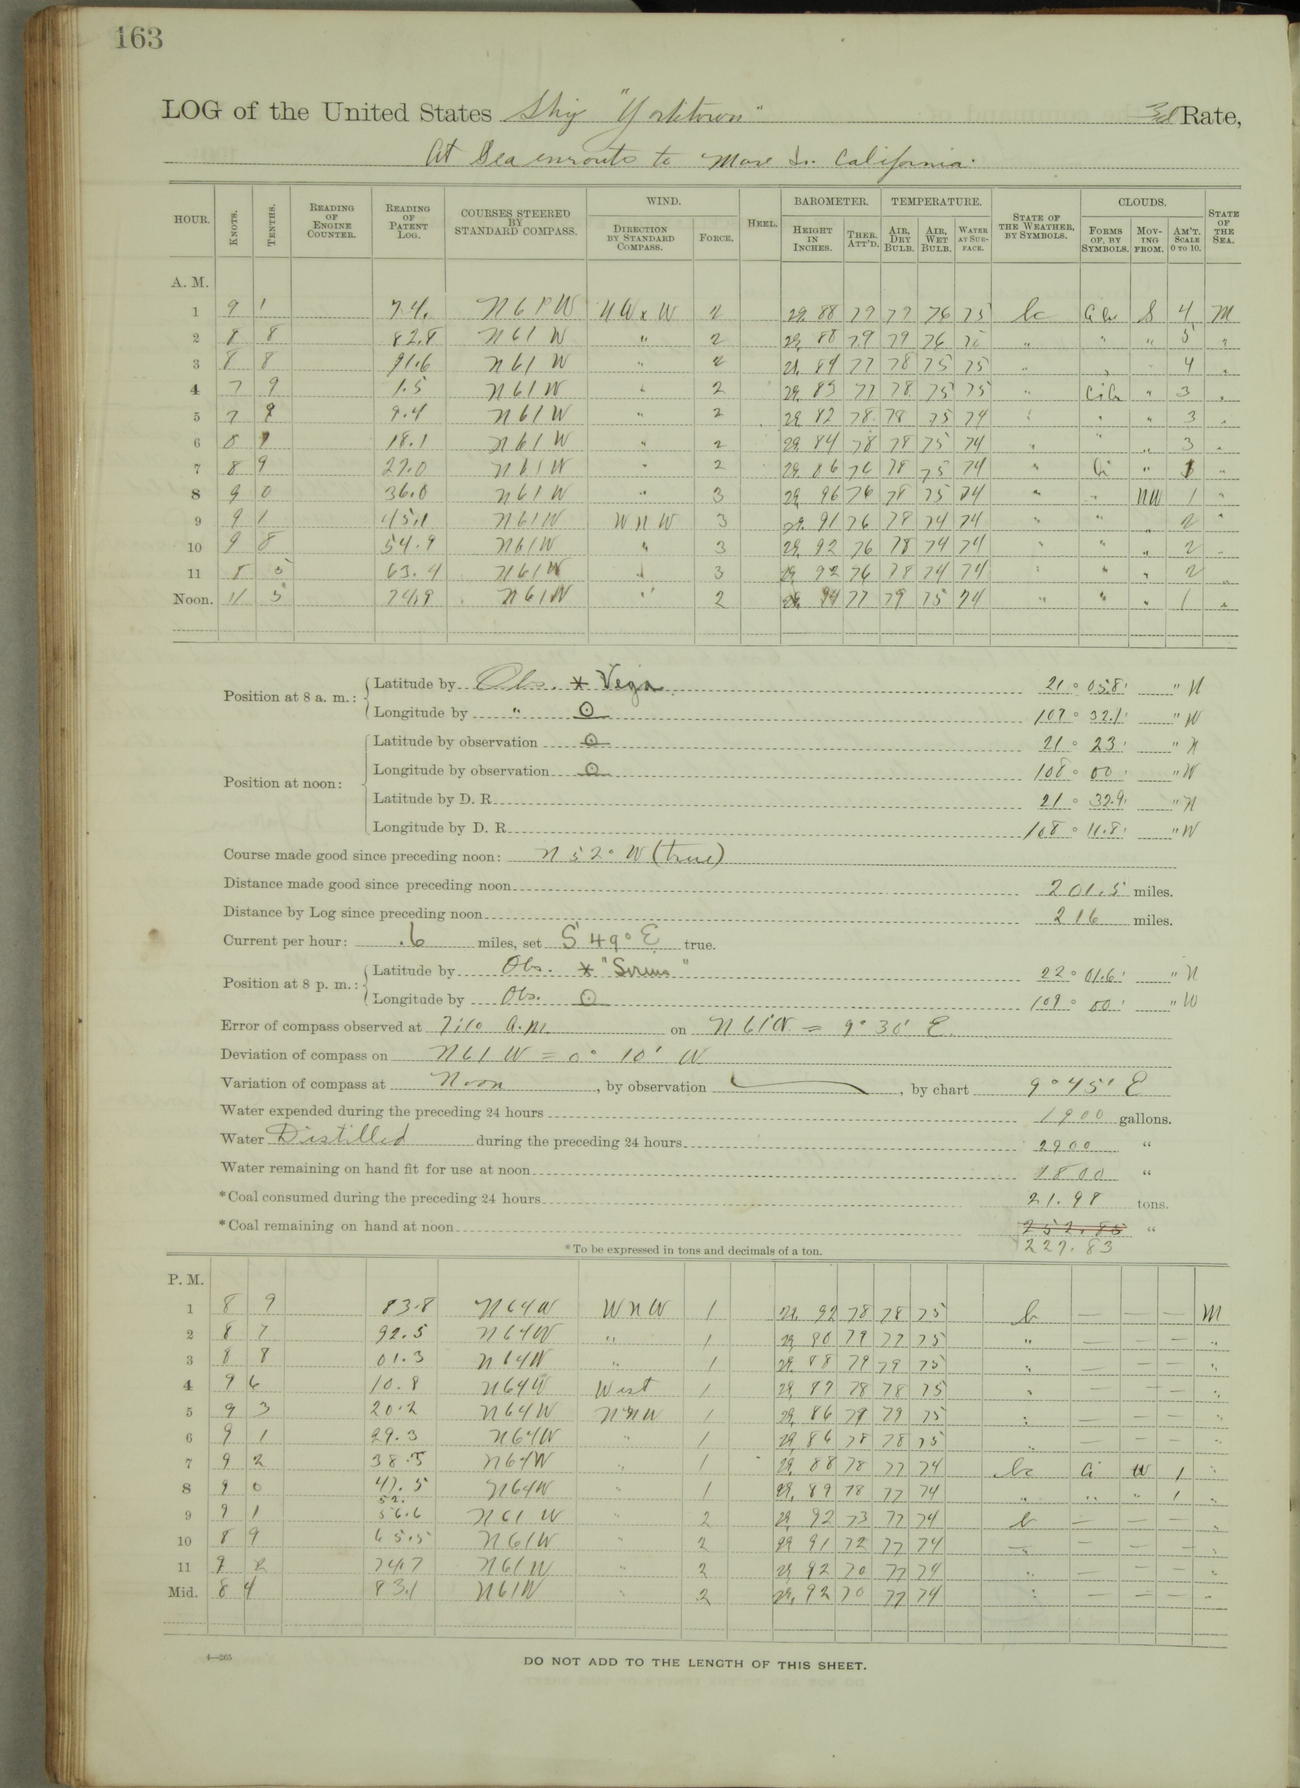 163
LOG of the United States Ship "Yorktown" 3d Rate,
At Sea enroute to Mare Is. California.
HOUR. KNOTS. TENTHS. READING OF ENGINE COUNTER. READING OF PATENT LOG. COURSES STEERED BY STANDARD COMPASS. WIND. DIRECTION BY STANDARD COMPASS. FORCE. HEEL. BAROMETER. HEIGHT IN INCHES. THER. ATT'D. TEMPERATURE. AIR, DRY BULB. AIR, WET BULB. WATER AT SURFACE. STATE OF THE WEATHER, BY SYMBOLS. CLOUDS. FORMS OF, BY SYMBOLS. MOVING FROM. AM'T. SCALE 0 TO 10. STATE OF THE SEA.
A. M.
1 9 1 74. N 61 W NW x W 2 29 88 79 77 76 75 bc S 4 M
2 8 8 82.8 N 61 W " 2 29 88 79 79 76 " " " 5 "
3 8 8 91.6 N 61 W " 2 29 84 77 78 75 75 " " " 4 "
4 7 9 1.5 N 61 W " 2 29 83 77 78 75 75 " " 3 "
5 7 9 9.4 N 61 W " 2 29 82 78 78 75 74 " " " 3 "
6 8 18.1 N 61 W " 2 29 84 78 78 75 74 " " " 3 "
7 8 9 27.0 N 61 W " 2 29 86 76 78 75 74 " Ci " 1 "
8 9 0 36.0 N 61 W " 3 29 96 76 78 75 74 " " NW 1 "
9 9 1 45.1 N 61 W WNW 3 29 91 76 78 74 74 " " " 2 "
10 9 8 54.9 N 61 W " 3 29 92 76 78 74 74 " " " 2 "
11 8 5 63.4 N 61 W " 3 29 92 76 78 74 74 " " " 2 "
Noon. 11 5 74.9 N 61 W " 2 29 94 77 79 75 74 " " " 1 "
Position at 8 a. m.: Latitude by Obs. * Vega 21 ° 05.8 ' " N
Longitude by " ☉ 107 ° 32.1 ' " W
Position at noon: Latitude by observation ☉ 21 ° 23 ' " N
Longitude by observation ☉ 108 ° 00 ' " W
Latitude by D. R. 21 ° 32.9 ' " N
Longitude by D. R. 108 ° 11.8 ' " W
Course made good since preceding noon: N 52° W (true)
Distance made good since preceding noon 201.5 miles.
Distance by Log since preceding noon 216 miles.
Current per hour: .6 miles, set S 49° E true.
Position at 8 p. m.: Latitude by Obs. * "Sirius" 22 ° 01.6 ' " N
Longitude by Obs. ☉ 109 ° 00 ' " W
Error of compass observed at 7:10 a.m. on N 61 W = 9° 30' E.
Deviation of compass on N 61 W = 0° 10' W
Variation of compass at Noon, by observation, by chart 9° 45' E
Water expended during the preceding 24 hours 1900 gallons.
Water Distilled during the preceding 24 hours 2900 "
Water remaining on hand fit for use at noon 1800 "
*Coal consumed during the preceding 24 hours 21.98 tons.
*Coal remaining on hand at noon "
227.83
*To be expressed in tons and decimals of a ton.
P. M.
1 8 9 83.8 N 64 W WNW 1 29 92 78 78 75 b — — — M
2 8 7 92.5 N 64 W " 1 29 90 79 77 75 " — — — "
3 8 8 01.3 N 64 W " 1 29 88 79 79 75 " — — — "
4 9 6 10.8 N 64 W West 1 29 87 78 78 75 " — — — "
5 9 3 20.2 N 64 W 1 29 86 79 79 75 " — — — "
6 9 1 29.3 N 64 W " 1 29 86 78 78 75 " — — — "
7 9 2 38.5 N 64 W " 1 29 88 78 77 74 bc Ci W 1 "
8 9 0 47.5 N 64 W " 1 29 89 78 77 74 " " " 1 "
52.
9 9 1 56.6 N 61 W " 2 29 92 73 77 74 b — — — "
10 8 9 65.5 N 61 W " 2 29 91 72 77 74 " — — — "
11 9 2 74.7 N 61 W " 2 29 92 70 77 74 " — — — "
Mid. 8 4 83.1 N 61 W " 2 29 92 70 77 74 " — — — "
4—265
DO NOT ADD TO THE LENGTH OF THIS SHEET.